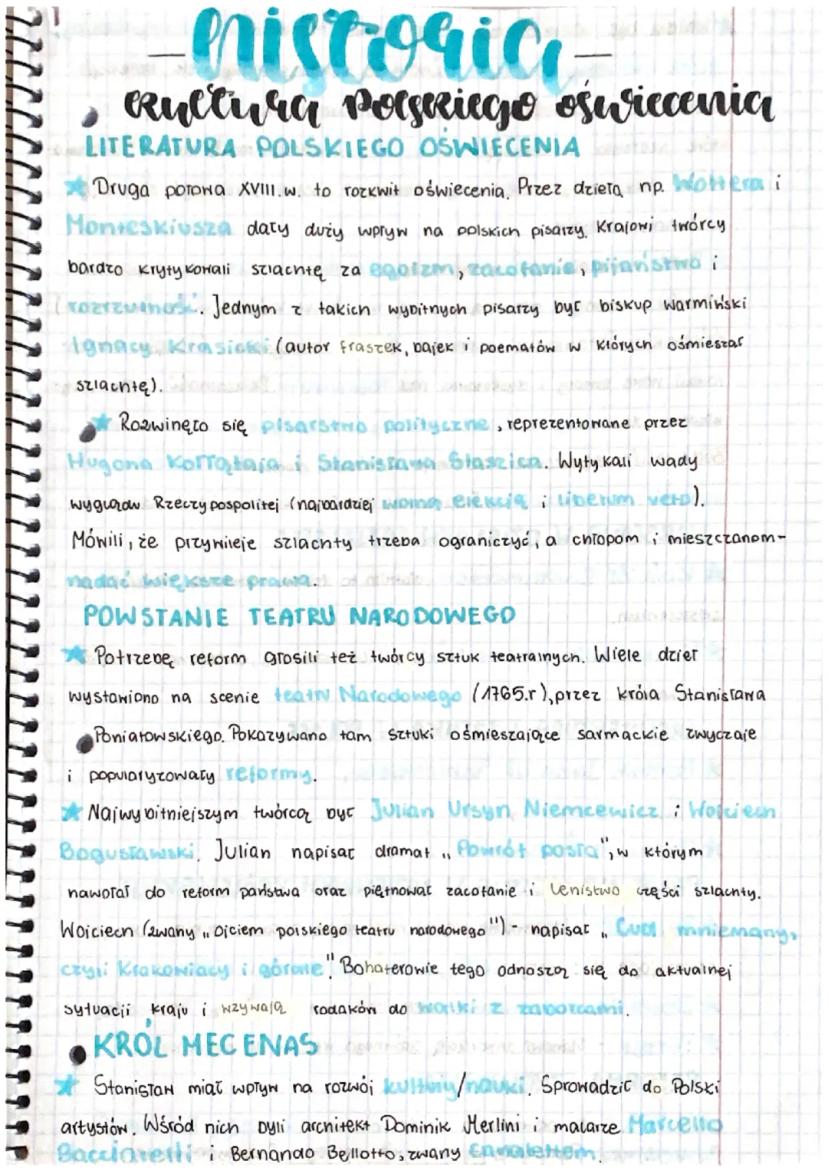 historia
kultura polskiego oświecenia
LITERATURA POLSKIEGO OŚWIECENIA
Druga połowa XVIII.w. to rozkwit oświecenia. Przez dzieła np. Woltera i
Monteskiusza dały duży wpływ na polskich pisarzy. Krajowi twórcy
bardzo krytykowali szlachtę za egoizm, zacofanie, pijaństwo i
rozrzutność. Jednym z takich wybitnych pisarzy był biskup warmiński
Ignacy Krasicki (autor fraszek, bajek i poematów w których ośmieszał
szlachtę).
Rozwinęło się pisarstwo polityczne, reprezentowane przez
Hugona Kołłątaja i Stanisława Staszica. Wytykali wady
Rzeczypospolitej (najbardziej wolną elekcję i liberum veto).
Mówili, że przywileje szlachty trzeba ograniczyć, a chłopom i mieszczanom-
nadać większe prawa.
POWSTANIE TEATRU NARODOWEGO
Potrzebę reform głosili też twórcy sztuk teatralnych. Wiele dzieł
wystawiono na scenie teatru Narodowego (1765.r), przez króla Stanisława
Poniatowskiego. Pokazywano tam sztuki ośmieszające sarmackie zwyczaje
i popularyzowały reformy.
Najwybitniejszym twórcą był Julian Ursyn Niemcewicz i Wojciech
Bogusławski. Julian napisał dramat „Powrót posła", w którym
nawołał do reform państwa oraz piętnował zacofanie i lenistwo części szlachty.
Wojciech (zwany „Ojciem polskiego teatru narodowego") - napisał „Cud mniemany,
czyli Krakowiacy i górale". Bohaterowie tego odnoszą się do aktualnej
sytuacji kraju i wzywają rodaków do walki z zaborcami.
KRÓL MECENAS
Stanisław miał wpływ na rozwój kultury/nauki. Sprowadził do Polski
artystów. Wśród nich byli architekt Dominik Merlini i malarze Marcello
Bacciarelli i Bernando Bellotto, zwany Canalettem.